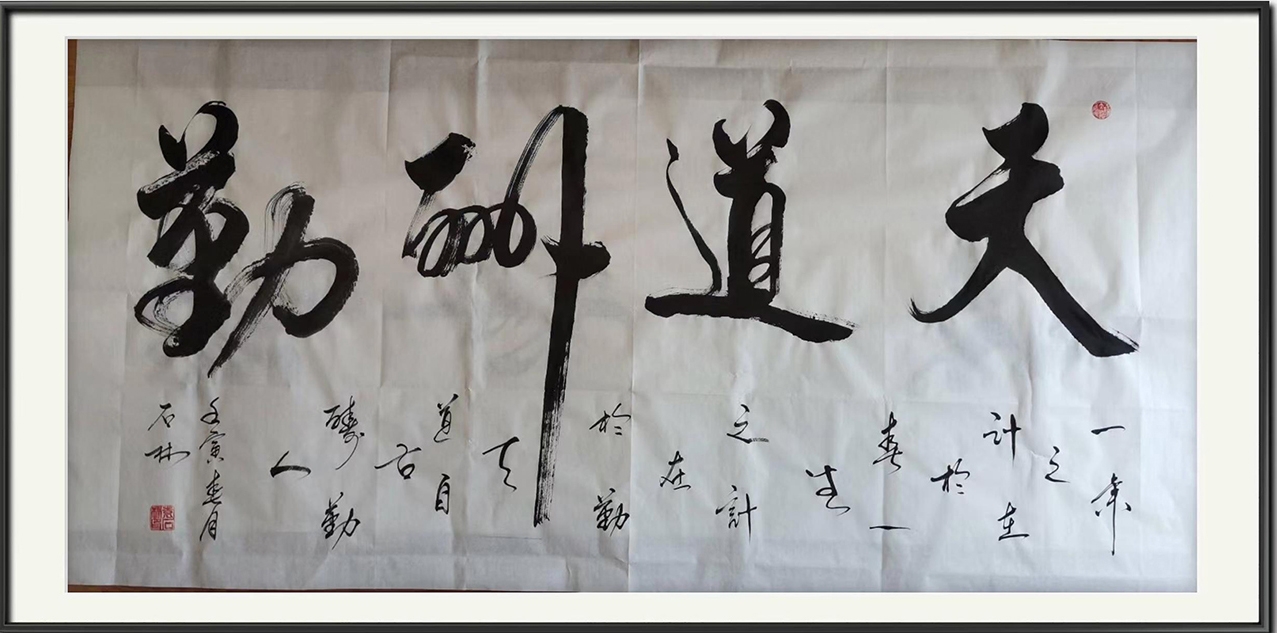 天道酬勤
一年
之
计在
於
春一
生
之計
在
於勤
天
道自
古
醻勤
人
壬寅春月
石林